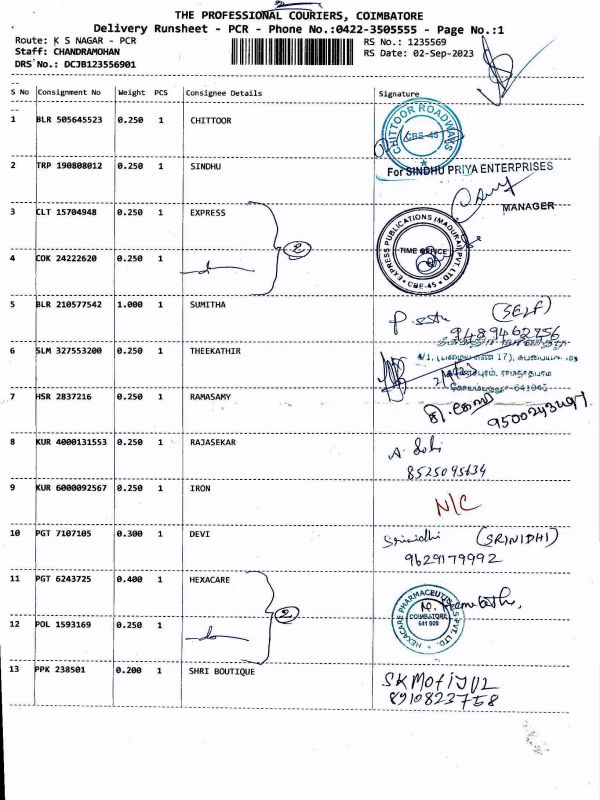 THE PROFESSIONAL COURIERS, COIMBATORE
Delivery Runsheet - PCR - Phone No.:0422-3505555 - Page No.:1
Route: K S NAGAR - PCR
RS No.: 1235569
Staff: CHANDRAMOHAN
RS Date: 02-Sep-2023
DRS No.: DCJB123556901
S No Consignment No Weight PCS Consignee Details Signature
1 BLR 505645523 0.250 1 CHITTOOR
CHITTOOR ROADWAYS
CBE-45
2 TRP 190808012 0.250 1 SINDHU
For SINDHU PRIYA ENTERPRISES
MANAGER
3 CLT 15704948 0.250 1 EXPRESS
EXPRESS PUBLICATIONS (MADURAI) PVT. LTD.
TIME OFFICE
CBE-45
2
4 COK 24222620 0.250 1
5 BLR 210577542 1.000 1 SUMITHA
(SELF)
9489462756
6 SLM 327553200 0.250 1 THEEKATHIR
7 HSR 2837216 0.250 1 RAMASAMY
9500243497
8 KUR 4000131553 0.250 1 RAJASEKAR
8525095134
9 KUR 6000092567 0.250 1 IRON
N/C
10 PGT 7107105 0.300 1 DEVI
Srinidhi (SRINIDHI)
9629179992
11 PGT 6243725 0.400 1 HEXACARE
HEXACARE PHARMACEUTICALS PVT. LTD.
COIMBATORE
641 009
2
12 POL 1593169 0.250 1
13 PPK 238501 0.200 1 SHRI BOUTIQUE
8910823758